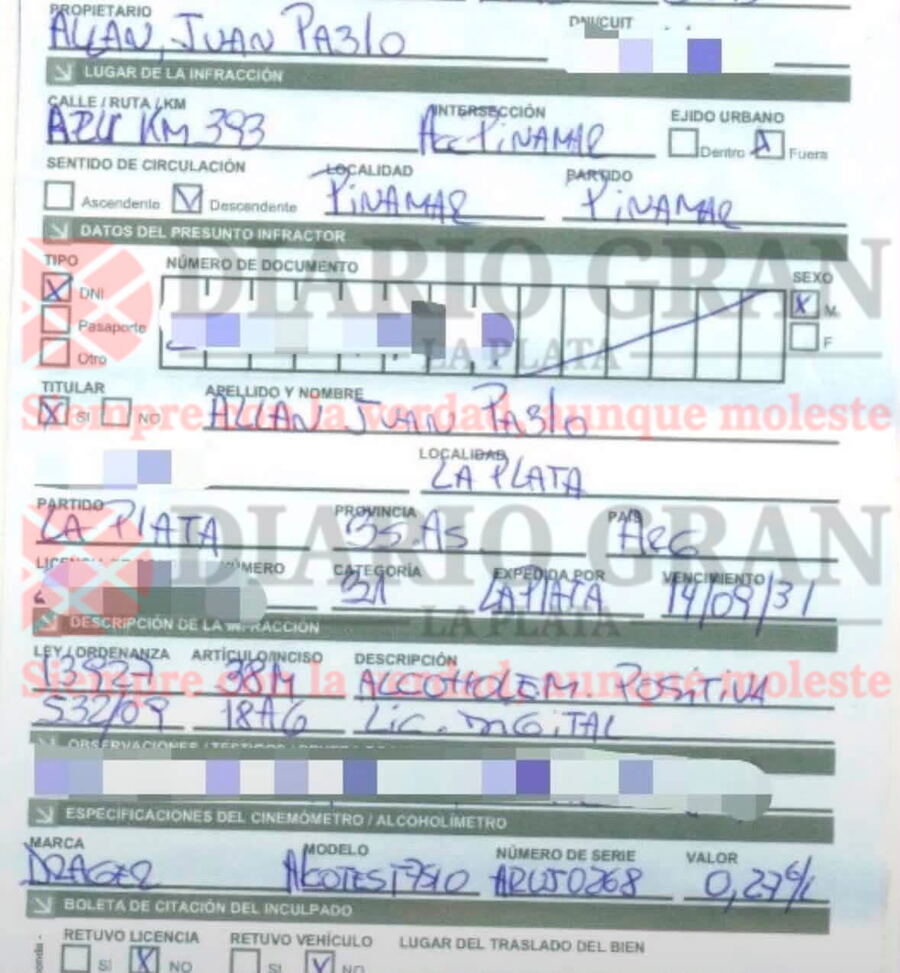 PROPIETARIO DNI/CUIT
ALLAN, JUAN PABlO
LUGAR DE LA INFRACCIÓN
CALLE / RUTA / KM INTERSECCIÓN EJIDO URBANO
KM 393 PINAMAR Dentro Fuera
SENTIDO DE CIRCULACIÓN LOCALIDAD PARTIDO
Ascendente Descendente PiNAMAR PiNAMAR
DATOS DEL PRESUNTO INFRACTOR
TIPO NÚMERO DE DOCUMENTO SEXO
DNI M
Pasaporte F
Otro
DIARIO GRAN
LA PLATA
TITULAR APELLIDO Y NOMBRE
SI NO ALLAN JUAN PABlO
Siempre con la verdad, aunque moleste
LOCALIDAD
LA PLATA
PARTIDO PROVINCIA PAÍS
LA PLATA BS.AS. ARG
DIARIO GRAN
LA PLATA
NÚMERO CATEGORÍA EXPEDIDA POR VENCIMIENTO
LA PLATA 14/09/31
DESCRIPCIÓN DE LA INFRACCIÓN
LEY / ORDENANZA ARTÍCULO/INCISO DESCRIPCIÓN
13927 38M ALCOHOLEM. POSITIVA
Siempre con la verdad, aunque moleste
532/09 LIC. DIGITAL
OBSERVACIONES / TESTIGOS /
ESPECIFICACIONES DEL CINEMÓMETRO / ALCOHOLÍMETRO
MARCA MODELO NÚMERO DE SERIE VALOR
DRAGER AlCOTEST7510
BOLETA DE CITACIÓN DEL INCULPADO
RETUVO LICENCIA RETUVO VEHÍCULO LUGAR DEL TRASLADO DEL BIEN
SI NO SI NO